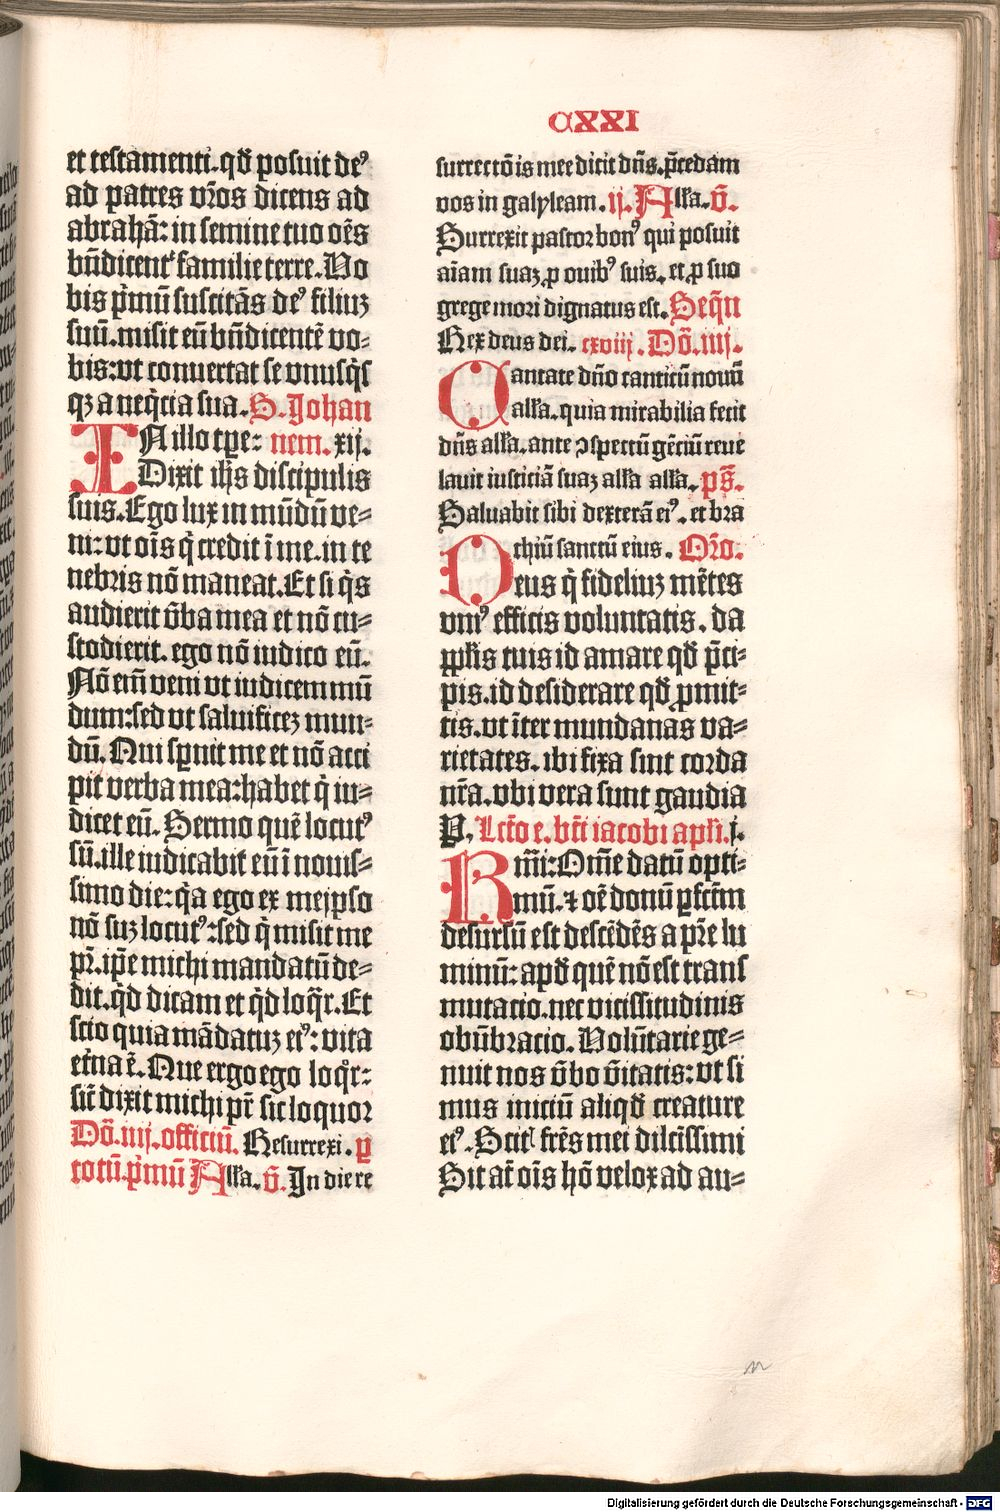 CXXI
et testamenti. qd̄ posuit de⁹
ad patres vr̄os dicens ad
abrahā: in semine tuo oēs
bn̄dicent᷑ familie terre. Vo
bis pͥmū suscitās de⁹ filiuʒ
suū. misit eū bn̄dicentē vo⸗
bis: vt conuertat se vnusqͥs
qʒ a neqͥcia sua. S. Johan
IN illo tꝑe: nem. xij.
Dixit ih̄s discipulis
suis. Ego lux in mūdū ve⸗
ni: vt oīs qͥ credit ī me. in te
nebris nō maneat. Et si qͥs
audierit v̄ba mea et nō cu⸗
stodierit. ego nō iudico eū.
Nō em̄ veni vt iudicem mū
dum: sed vt saluificeʒ mun⸗
dū. Qui spͥnit me et nō acci
pit verba mea: habet qͥ iu⸗
dicet eū. Sermo quē locut⁹
sū. ille iudicabit eū ī nouis⸗
simo die: qͣa ego ex meipso
nō suʒ locut⁹: sed qͥ misit me
pr̄. ip̄e michi mandatū de⸗
dit. qͥd dicam et qͥd loqͣr. Et
scio quia mādatuʒ ei⁹: vita
et̄na ē. Que ergo ego loqͦr:
sic̄ dixit michi pr̄ sic loquor
Dō. iiij. officiū. Resurrexi. ꝑ
totū. pͥmū All̄a. v̄. In die re
surrectōis mee dicit dn̄s. p̄cedam
vos in galyleam. ij. All̄a. v̄.
Surrexit pastor bon⁹ qui posuit
aīam suaʒ ꝓ ouib⁹ suis. et ꝓ suo
grege mori dignatus est. Seqn̄
Rex deus dei. cxviij. Dō. iiij.
Cantate dn̄o canticū nouū
all̄a. quia mirabilia fecit
dn̄s all̄a. ante ꝯspectū gēciū reue
lauit iusticiā suaʒ all̄a all̄a. ps̄.
Saluabit sibi dexterā ei⁹. et bra
chiū sanctū eius. Orō.
Deus qͥ fideliuʒ mētes
vni⁹ efficis voluntatis. da
ppl̄is tuis id amare qd̄ p̄ci⸗
pis. id desiderare qd̄ ꝓmit⸗
tis. vt īter mundanas va⸗
rietates. ibi fixa sint corda
nr̄a. vbi vera sunt gaudia
P. Lctō e. bt̄i iacobi apl̄i. j.
Krm̄i: Om̄e datū opti⸗
mū. ⁊ oē donū ꝑfctm̄
desursū est descēdēs a pr̄e lu
minū: apd̄ quē nō est trans
mutacio. nec vicissitudinis
obūbracio. Volūtarie ge⸗
nuit nos v̄bo v̄itatis: vt si
mus iniciū aliqd̄ creature
ei⁹. Scit᷑ fr̄es mei dilc̄issimi
Sit at̄ oīs hō velox ad au⸗
Digitalisierung gefördert durch die Deutsche Forschungsgemeinschaft - DFG